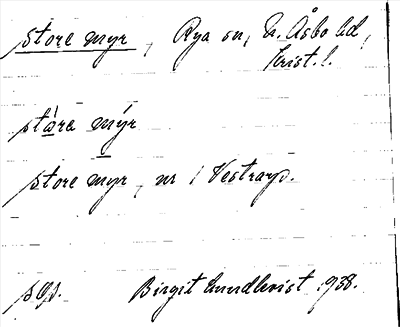 store myr, Rya sn, N. Åsbo hd,
Krist. l.
stàre mýr
store myr, nr 1 Vestrarp.
sgs. Birgit Lundkvist 1938.